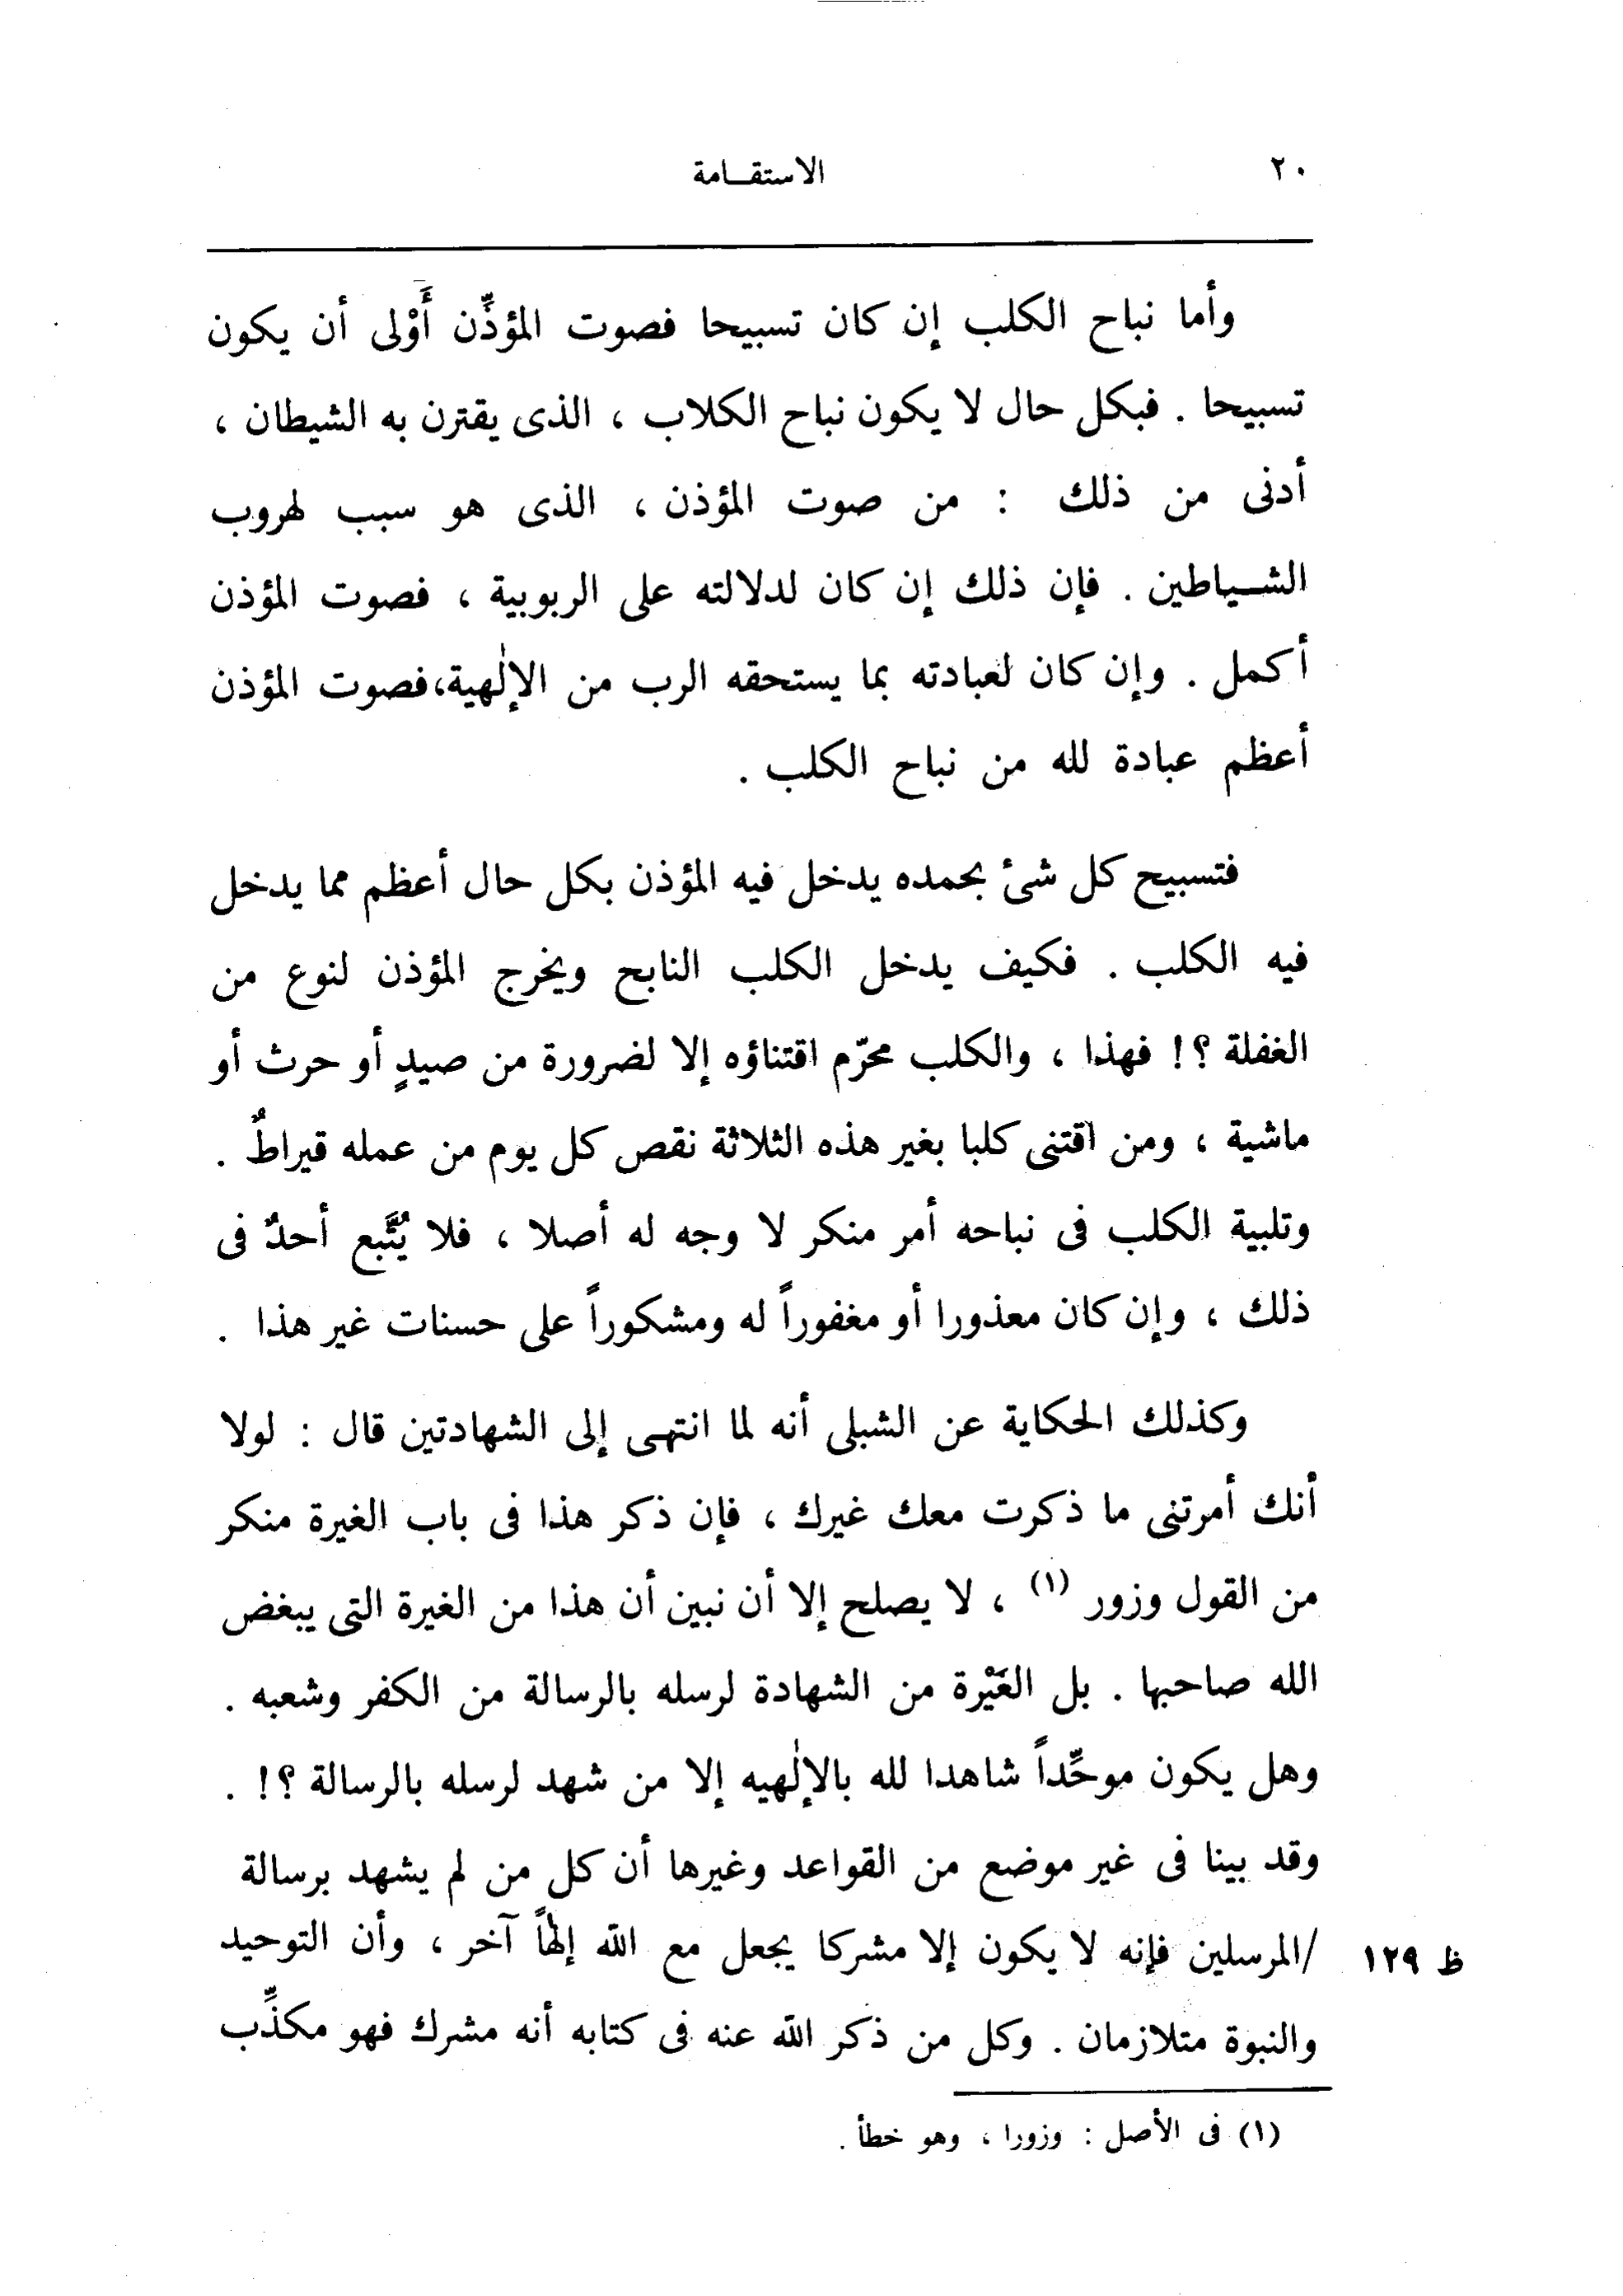 ٢٠
الاستقـامة
وأما نباح الكلب إن كان تسبيحا فصوت المؤذِّن أَوْلى أن يكون
تسبيحا . فبكل حال لا يكون نباح الكلاب ، الذى يقترن به الشيطان ،
أدنى من ذلك : من صوت المؤذن ، الذى هو سبب لهروب
الشـياطين . فإن ذلك إن كان لدلالته على الربوبية ، فصوت المؤذن
أكمل . وإن كان لعبادته بما يستحقه الرب من الإلٰهية،فصوت المؤذن
أعظم عبادة لله من نباح الكلب .
فتسبيح كل شئ بحمده يدخل فيه المؤذن بكل حال أعظم مما يدخل
فيه الكلب . فكيف يدخل الكلب النابح ويخرج المؤذن لنوع من
الغفلة ؟! فهذا ، والكلب محرّم اقتناؤه إلا لضرورة من صيدٍ أو حرث أو
ماشية ، ومن اقتنى كلبا بغير هذه الثلاثة نقص كل يوم من عمله قيراطٌ .
وتلبية الكلب فى نباحه أمر منكر لا وجه له أصلا ، فلا يُتَّبع أحدٌ فى
ذلك ، وإن كان معذورا أو مغفوراً له ومشكوراً على حسنات غير هذا .
وكذلك الحكاية عن الشبلى أنه لما انتهى إلى الشهادتين قال : لولا
أنك أمرتنى ما ذكرت معك غيرك ، فإن ذكر هذا فى باب الغيرة منكر
من القول وزور (١) ، لا يصلح إلا أن نبين أن هذا من الغيرة التى يبغض
الله صاحبها . بل الغَيْرة من الشهادة لرسله بالرسالة من الكفر وشعبه .
وهل يكون موحِّداً شاهدا لله بالإلٰهيه إلا من شهد لرسله بالرسالة ؟! .
وقد بينا فى غير موضع من القواعد وغيرها أن كل من لم يشهد برسالة
/المرسلين فإنه لا يكون إلا مشركا يجعل مع الله إلٰهاً آخر ، وأن التوحيد
ظ ١٢٩
والنبوة متلازمان . وكل من ذكر الله عنه فى كتابه أنه مشرك فهو مكذِّب
(١) فى الأصل : وزورا ، وهو خطأ .